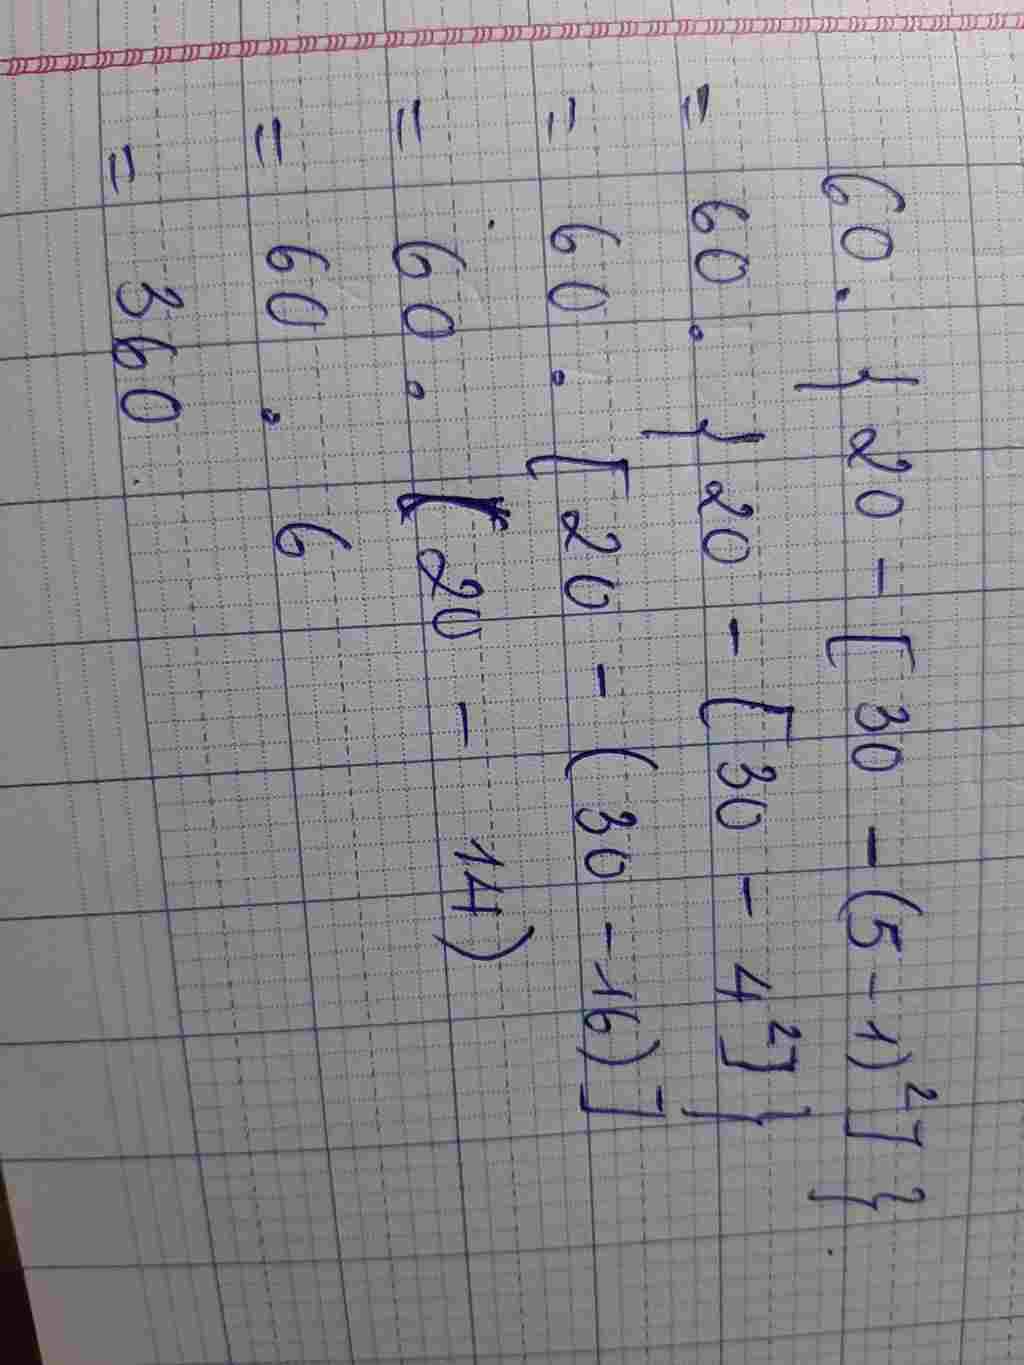 60 . { 20 - [ 30 - (5 - 1)² ] }
= 60 . { 20 - [ 30 - 4² ] }
= 60 . [ 20 - ( 30 - 16 ) ]
= 60 . [ 20 - 14 )
= 60 . 6
= 360